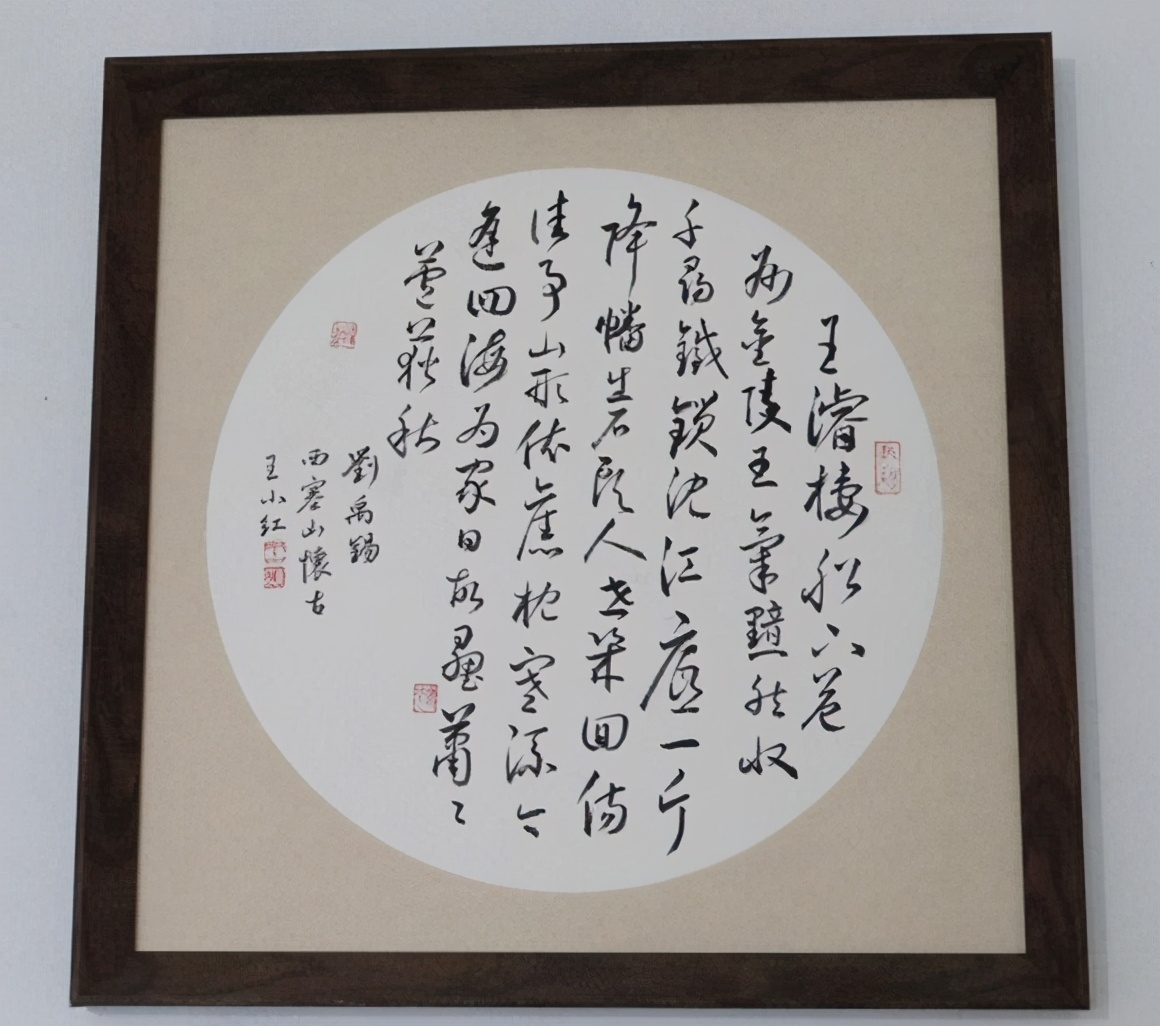 王濬樓船下益
州金陵王氣黯然收
千尋鐵鎖沈江底一片
降幡出石頭人世幾回傷
往事山形依舊枕寒流今
逢四海為家日故壘蕭々
蘆荻秋
劉禹錫
西塞山懷古
王小紅